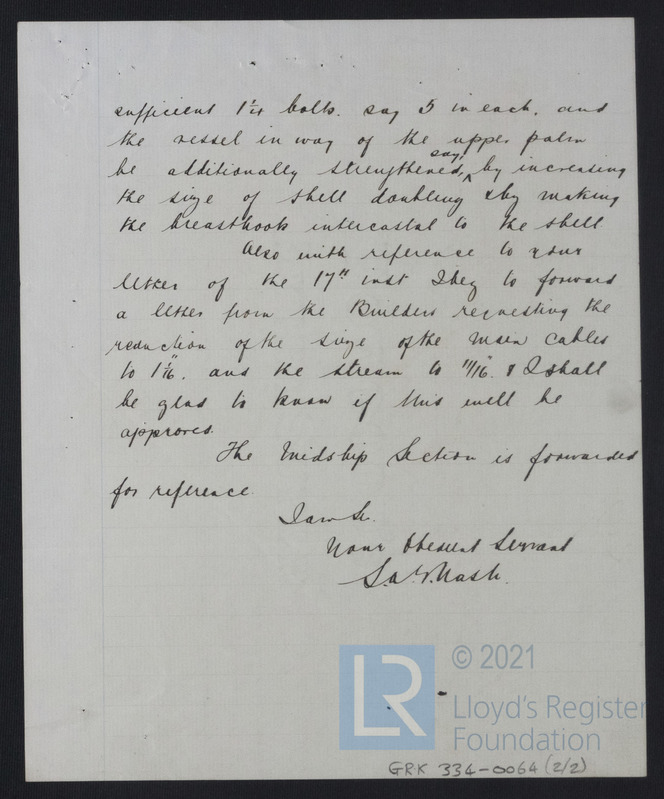 sufficient 1 1/4 bolts. say 5 in each, and
the vessel in way of the upper palm
be additionally strengthened, say, by increasing
the size of shell doubling & by making
the breasthook intercostal to the shell
Also with reference to your
letter of the 17th inst I beg to forward
a letter from the Builders requesting the
reduction of the size of the main cables
to 1 1/16". and the stream to 11/16" & I shall
be glad to know if this will be
approved.
The Midship Section is forwarded
for reference.
I am Sir.
Your Obedient Servant
Nash.
© 2021
LR
Lloyd's Register
Foundation
GRK 334-0064 (2/2)